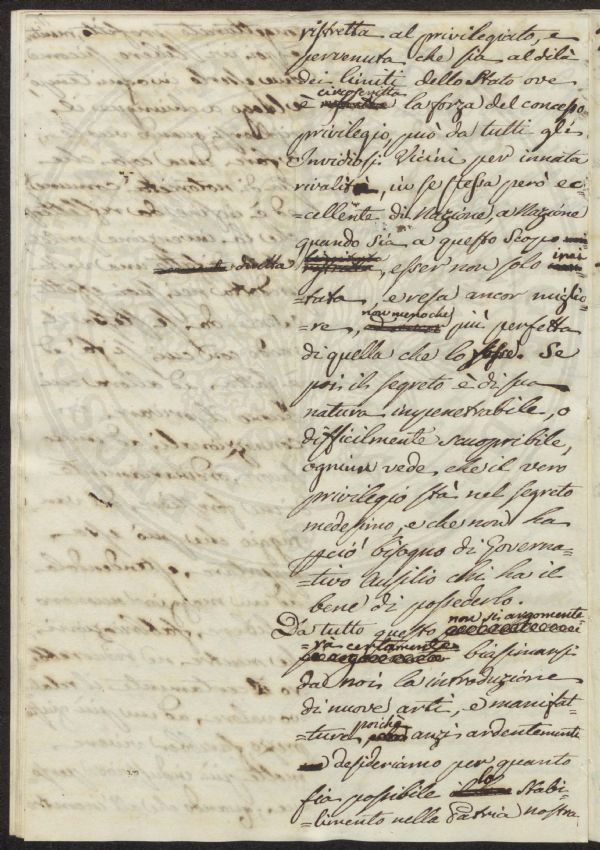 ristretta al privilegiato, e
pervenuta che sia al di là
dei limiti dello Stato ove
circoscritta
è la forza del concesso
privilegio, può da tutti gli
Invidiosi Vicini per innata
rivalità, in se stessa però ec
=cellente di Nazione a Nazione
quando sia a questo scopo
diretta, esser non solo imi
=tata, e resa ancor miglio
non meno che
=re, più perfetta
di quella che lo fosse. Se
poi il segreto è di sua
natura impenetrabile, o
difficilmente scuopribile,
ognun vede, che il vero
privilegio stà nel segreto
medesimo, e che non ha
perciò bisogno di Governa=
=tivo Ausilio chi ha il
bene di possederlo.
non si argomente
Da tutto questo
=rà certamente biasimarsi
da noi la introduzione
di nuove arti, e manifat=
poichè
=ture, anzi ardentemente
desideriamo per quanto
lo
fia possibile Stabi=
=limento nella Patria nostra